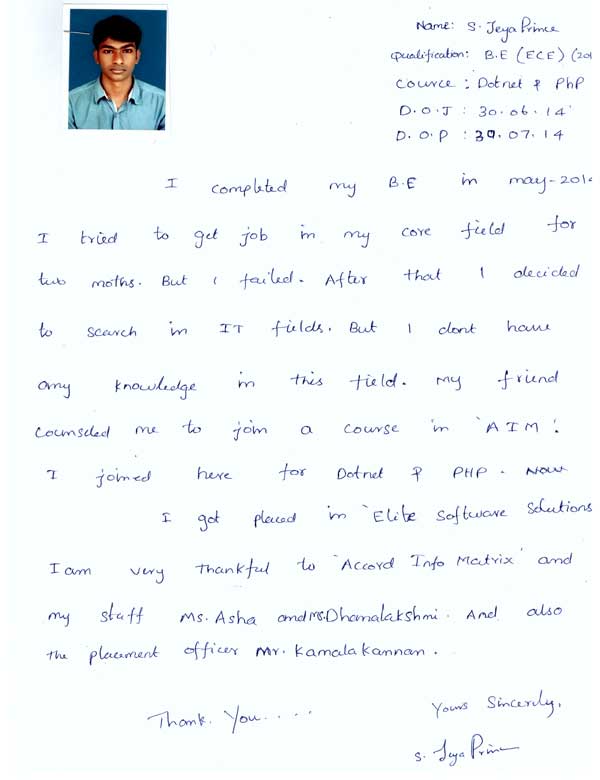 Name: S. Jeya Prince
Qualification: B.E (ECE) (201
Cource : Dotnet & PhP
D.O.J : 30.06.14
D.O.P : 30.07.14
I completed my B.E in may-201
I tried to get job in my core field for
two moths. But I failed. After that I decided
to search in IT fields. But I dont have
any knowledge in this field. My friend
counseled me to join a course in 'AIM'.
I joined here for Dotnet & PHP. Now
I got placed in 'Elite Software Solutions
I am very thankful to 'Accord Info Matrix' and
my staff Ms. Asha and Ms. Dhanalakshmi. And also
the placement officer Mr. Kamala Kannan.
Thank You.....
Yours Sincerly,
S. Jeya Prince